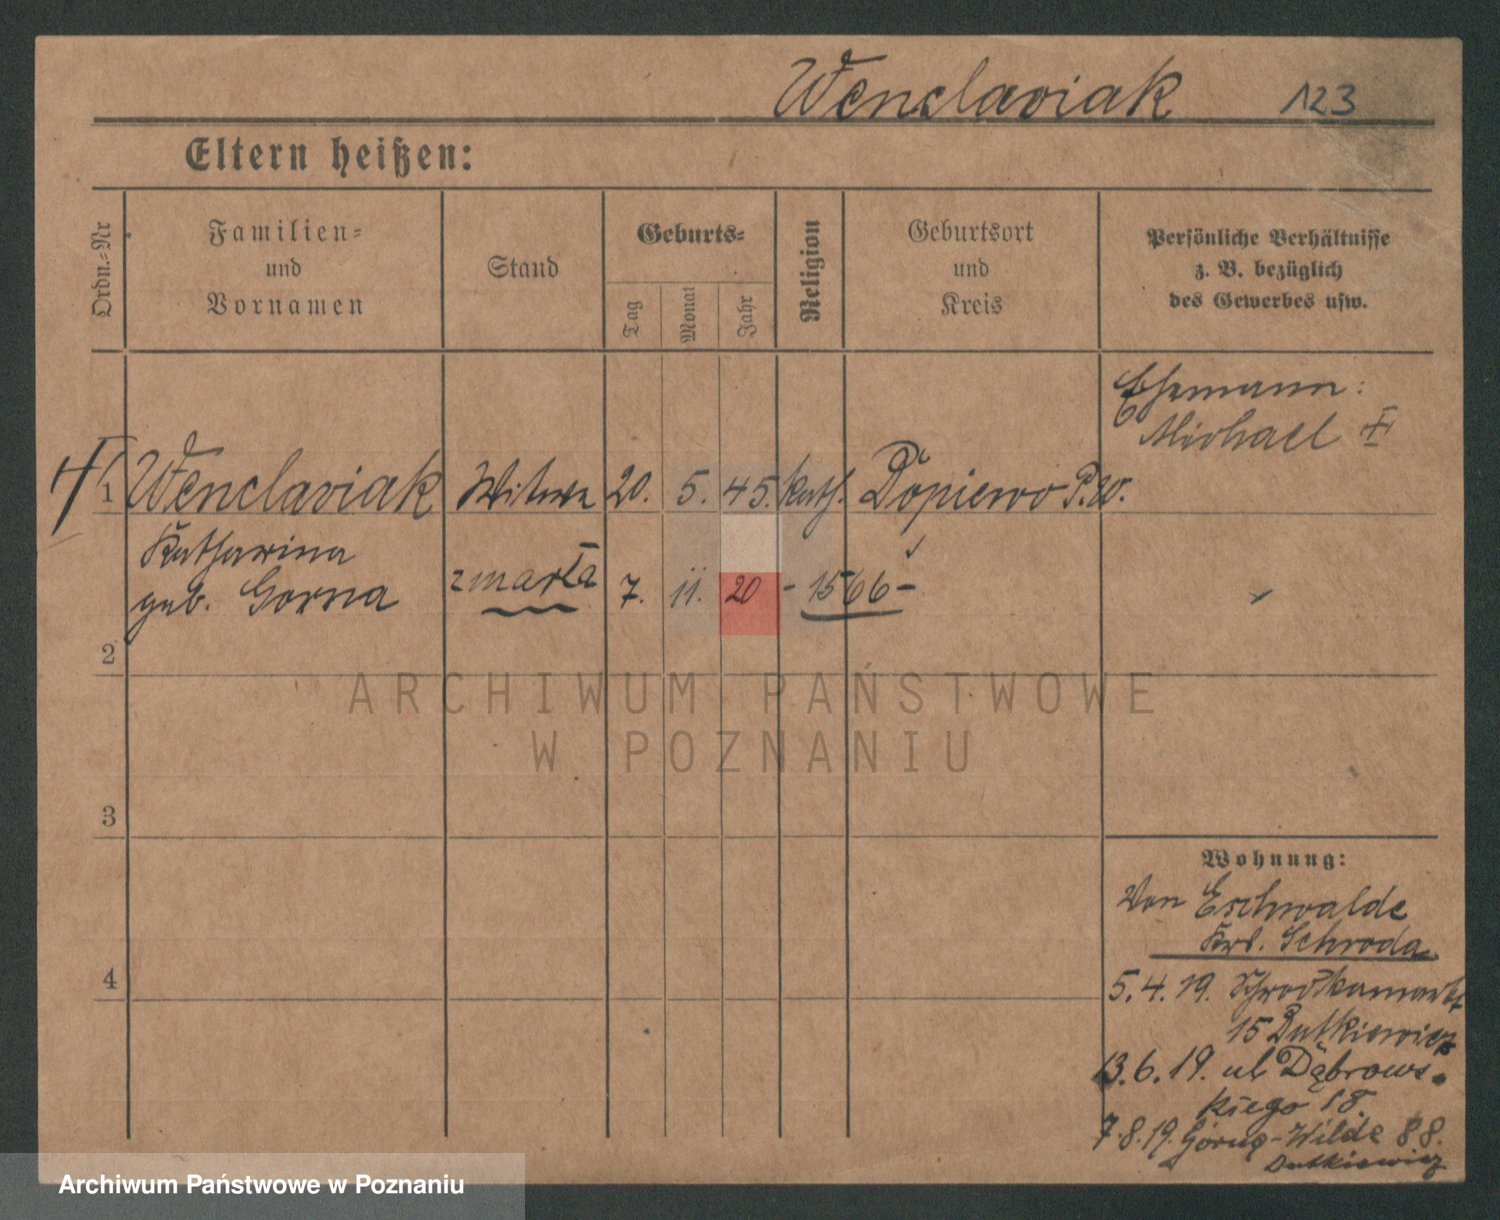 Wenclaviak 123
Eltern heißen:
Ordn.-Nr
Familien-
und
Vornamen
Stand
Geburts-
Tag
Monat
Jahr
Religion
Geburtsort
und
Kreis
Persönliche Verhältnisse
z. B. bezüglich
des Gewerbes usw.
Ehemann:
Michael
1 Wenclaviak Witwe 20. 5. 45. kath. Dopiewo P.W.
Katharina
geb. Gorna zmarła 7. 11. 20 - 1566 -
2
ARCHIWUM PAŃSTWOWE
W POZNANIU
3
Wohnung:
Von Eschwalde
Krs. Schroda
4
5.4.19. Schrodkamarkt
15 Dutkiewicz
13.6.19. ul Dąbrows-
kiego 18.
7.8.19. Górną-Wilde 88.
Dutkiewicz
Archiwum Państwowe w Poznaniu